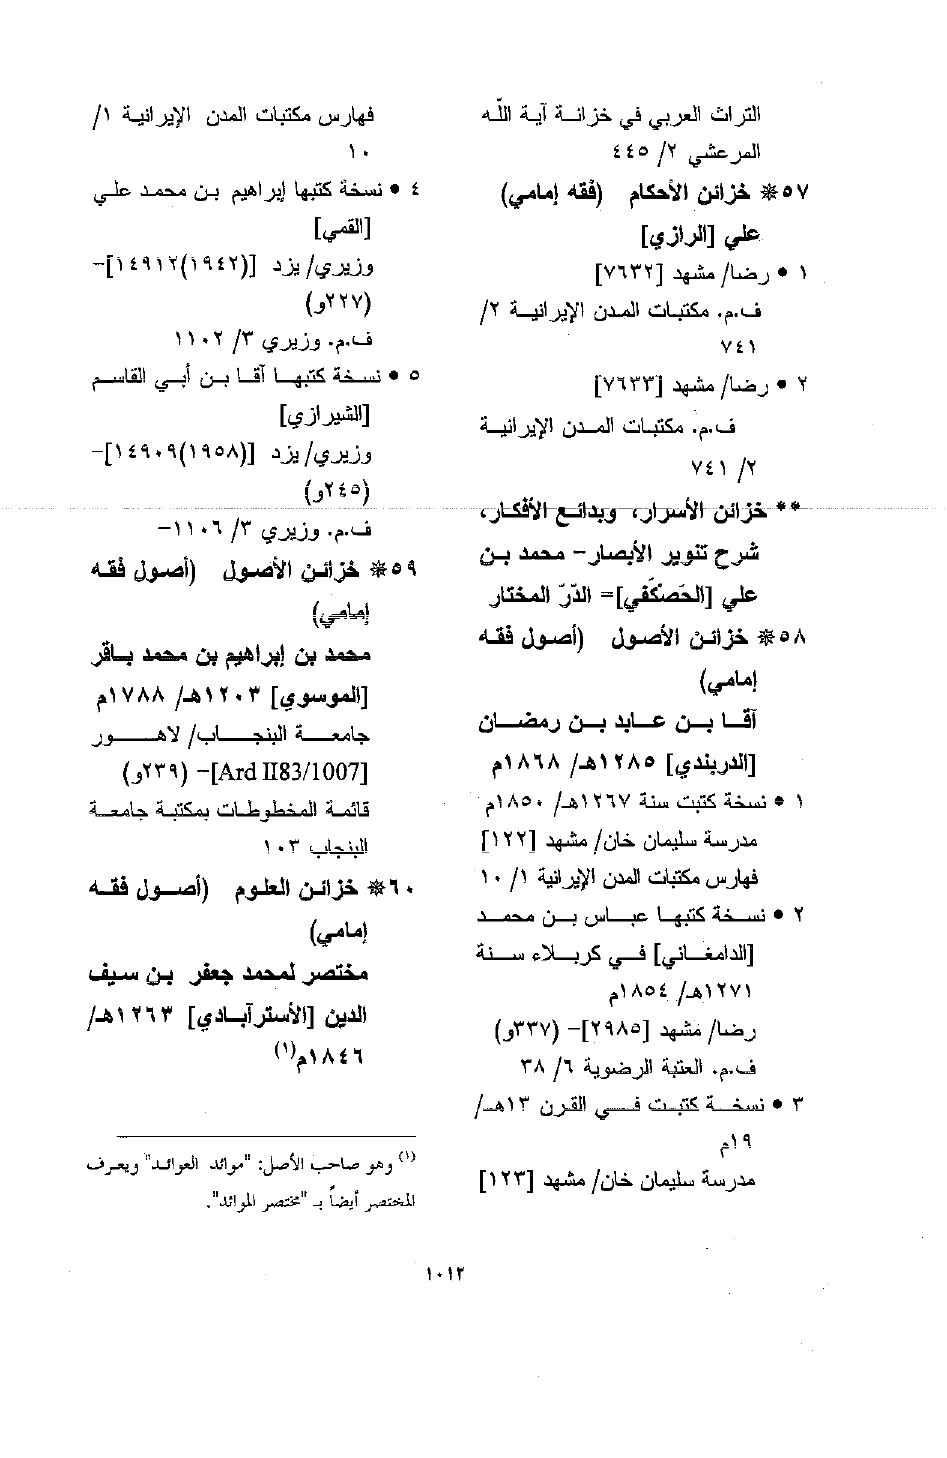 التراث العربي في خزانة آية اللّه
المرعشي ٢/ ٤٤٥
٥٧ * خزائن الأحكام (فقه إمامي)
علي [الرازي]
١ • رضا/ مشهد [٧٦٣٢]
ف.م. مكتبات المدن الإيرانية ٢/
٧٤١
٢ • رضا/ مشهد [٧٦٣٣]
ف.م. مكتبات المدن الإيرانية
٢/ ٧٤١
** خزائن الأسرار، وبدائع الأفكار،
شرح تنوير الأبصار- محمد بن
علي [الحَصْكَفي]= الدّرّ المختار
٥٨ * خزائن الأصول (أصول فقه
إمامي)
آقا بن عابد بن رمضان
[الدربندي] ١٢٨٥هـ/ ١٨٦٨م
١ • نسخة كتبت سنة ١٢٦٧هـ/ ١٨٥٠م
مدرسة سليمان خان/ مشهد [١٢٢]
فهارس مكتبات المدن الإيرانية ١/ ١٠
٢ • نسخة كتبها عباس بن محمد
[الدامغاني] في كربلاء سنة
١٢٧١هـ/ ١٨٥٤م
رضا/ مشهد [٢٩٨٥]- (٣٣٧و)
ف.م. العتبة الرضوية ٦/ ٣٨
٣ • نسخة كتبت في القرن ١٣هـ/
١٩م
مدرسة سليمان خان/ مشهد [١٢٣]
فهارس مكتبات المدن الإيرانية ١/
١٠
٤ • نسخة كتبها إبراهيم بن محمد علي
[القمي]
وزيري/ يزد [(١٩٤٢)١٤٩١٢]-
(٢٢٧و)
ف.م. وزيري ٣/ ١١٠٢
٥ • نسخة كتبها آقا بن أبي القاسم
[الشيرازي]
وزيري/ يزد [(١٩٥٨)١٤٩٠٩]-
(٢٤٥و)
ف.م. وزيري ٣/ ١١٠٦-
٥٩ * خزائن الأصول (أصول فقه
إمامي)
محمد بن إبراهيم بن محمد باقر
[الموسوي] ١٢٠٣هـ/ ١٧٨٨م
جامعة البنجاب/ لاهور
[Ard II83/1007]- (٢٣٩و)
قائمة المخطوطات بمكتبة جامعة
البنجاب ١٠٣
٦٠ * خزائن العلوم (أصول فقه
إمامي)
مختصر لمحمد جعفر بن سيف
الدين [الأسترآبادي] ١٢٦٣هـ/
١٨٤٦م(١)
(١) وهو صاحب الأصل: "موائد العوائد" ويعرف
المختصر أيضاً بـ "مختصر الموائد".
١٠١٢